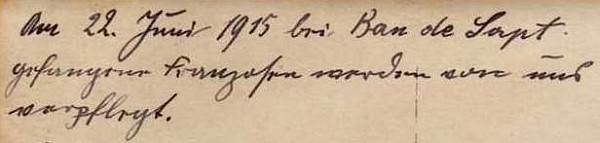 Am 22. Juni 1915 bei Ban de Sapt.
gefangene Franzosen werden von uns
verpflegt.